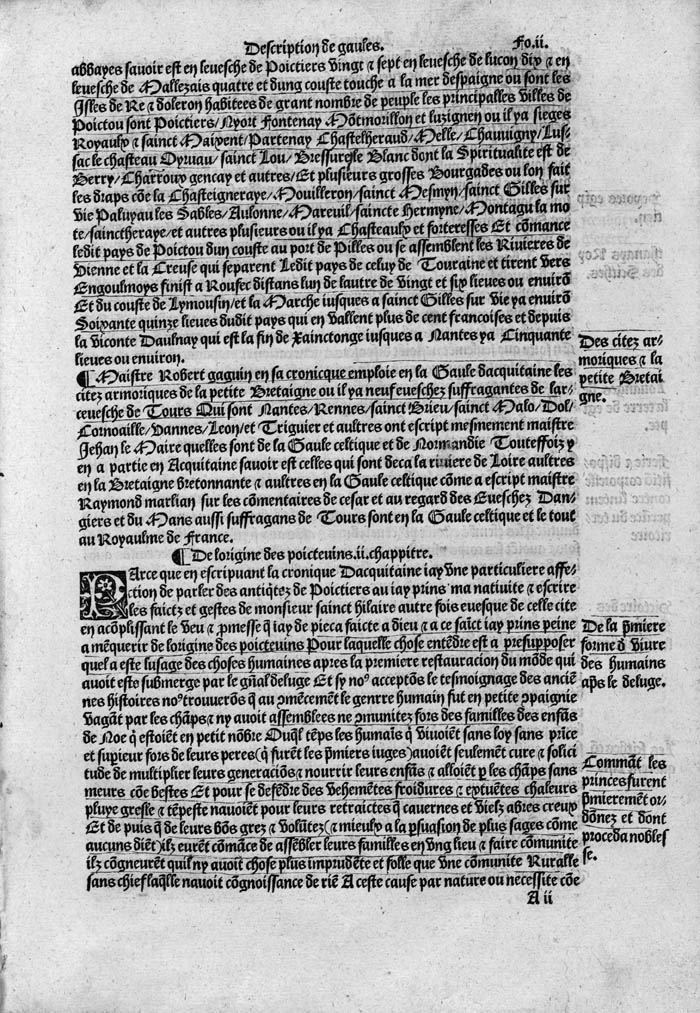 Description de gaules.
Fo.ii.
abbayes savoir est en levesche de Poictiers vingt & sept en levesche de lucon dix & en
levesche de Mallezais quatre et dung couste touche a la mer despaigne ou sont les
Isles de Re & doleron habitees de grant nombre de peuple les principalles villes de
Poictou sont Poictiers/Nyort Fontenay Mõtmorillon et luzignen ou il ya sieges
Royaulx & sainct Maixent/Partenay Chastelheraud/Melle/Chauvigny/Lus-
sac le chasteau Oyruau/sainct Lou/Bressuresle Blanc dont la Spiritualite est de
Berry/Charroux gencay et autres/Et plusieurs grosses Bourgades ou lon fait
les draps cõe la Chasteigneraye/Mouilleron/sainct Mesmyn/sainct Gilles sur
vie Paluyau les Sables/Aulonne/Mareuil/saincte Hermyne/Montagu la mo
te/sainctheraye/et autres plusieurs ou il ya Chasteaulx et forteresses Et cõmance
ledit pays de Poictou dun couste au port de Pilles ou se assemblent les Rivieres de
Vienne et la Creuse qui separent Ledit pays de celuy de Touraine et tirent vers
Engoulmoys finist a Roufec distans lun de lautre de vingt et six lieues ou envirõ
Et du couste de Lymousin/et la Marche iusques a sainct Gilles sur vie ya envirõ
Soixante quinze lieues dudit pays qui en vallent plus de cent francoises et depuis
la viconte Daulnay qui est la fin de Xainctonge iusques a Nantes ya Cinquante
lieues ou environ.
Des citez ar-
moriques & la
petite Bretai
gne.
¶ Maistre Robert gaguin en sa cronicque emploie en la Gaule dacquitaine les
citez armoriques de la petite Bretaigne ou il ya neuf eveschez suffragantes de lar-
cevesche de Tours Qui sont Nantes/Rennes/sainct Brieu/sainct Malo/Dol/
Cornoaille/Vannes/Leon/et Triguier et aultres ont escript mesmement maistre
Jehan le Maire quelles sont de la Gaule celtique et de Normandie Touteffoiz y
en a partie en Acquitaine savoir est celles qui sont deca la riviere de Loire aultres
en la Bretaigne bretonnante & aultres en la Gaule celtique cõme a escript maistre
Raymond marlian sur les cõmentaires de cesar et au regard des Eveschez Dan-
giers et du Mans aussi suffragans de Tours sont en la Gaule celtique et le tout
au Royaulme de France.
¶ De lorigine des poictevins.ii.chappitre.
PArce que en escripuant la cronique Dacquitaine iay vne particuliere affe-
ction de parler des antiq̃tez de Poictiers au iay prins ma nativite & escrire
les faictz et gestes de monsieur sainct hilaire autre fois evesque de celle cite
en acõplissant le veu & ꝓmesse q̃ iay de pieca faicte a dieu & a ce saĩct iay prins peine
a mẽquerir de lorigine des poictevins Pour laquelle chose entẽdre est a presupposer
quel a este lusage des choses humaines apres la premiere restauracion du mõde qui
avoit este submerge par le gñal deluge Et sy noꝰ acceptõs le tesmoignage des anciẽ
nes histoires noꝰ trouverõs q̃ au ꝯmẽcemẽt le genrre humain fut en petite ꝯpaignie
vagãt par les chãps & ny avoit assemblees ne ꝯmunitez fors des familles des enfãs
de Noe q̃ estoiẽt en petit nõbre Ouq̃l tẽps les humaĩs q̃ vivoiẽt sans loy sans prĩce
et supieur fors de leurs peres (q̃ furẽt les p̃miers iuges) avoiẽt seulemẽt cure & solici
tude de multiplier leurs generaciõs & nourrir leurs enfãs & alloiẽt ꝑ les chãps sans
meurs cõe bestes Et pour se defẽdre des vehemẽtes froidures & extuẽtes chaleurs
pluye gresle & tẽpeste navoiẽt pour leurs retraictes q̃ cavernes et vielz abres creux
Et de puis q̃ de leurs bõs grez & volũtez (& mieulx a la ꝑsuasion de plus sages cõme
aucuns diẽt) ilz eurẽt cõmãce de assẽbler leurs familles en vng lieu & faire cõmunite
ilz cõgneurẽt quil ny avoit chose plus imprudẽte et folle que vne cõmunite Ruralle
sans chief laq̃lle navoit cõgnoissance de riẽ A ceste cause par nature ou necessite cõe
De la p̃miere
forme d' viure
des humains
ap̃s le deluge.
Commãt les
princes furent
p̃mieremẽt or-
dõnez et dont
proceda nobles
se.
A ii